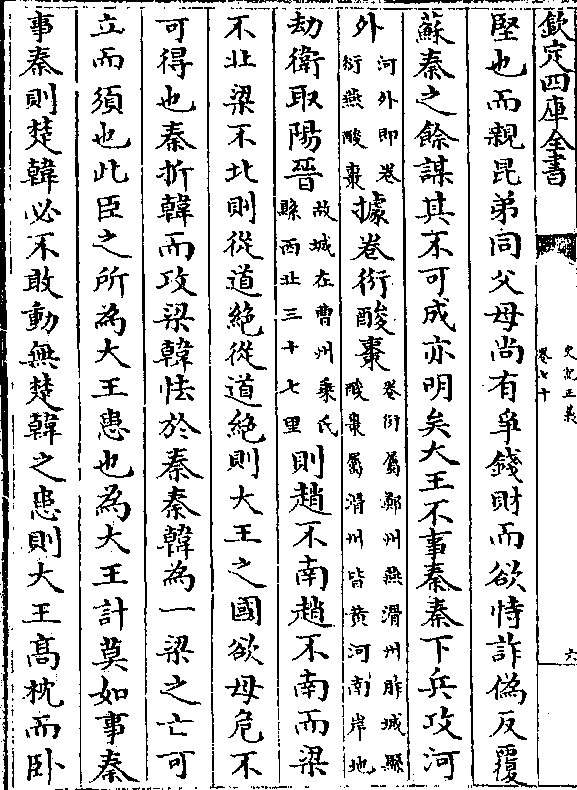 欽定四庫全書
史記正義
卷七十
六
堅也而親昆弟同父母尚有爭錢財而欲恃詐偽反覆
蘇秦之餘謀其不可成亦明矣大王不事秦秦下兵攻河
外河外即卷衍燕酸棗據卷衍酸棗卷衍屬鄭州燕滑州胙城縣酸棗屬滑州皆黃河南岸地
劫衛取陽晉故城在曹州乗氏縣西北三十七里則趙不南趙不南而梁
不北梁不北則從道絶從道絶則大王之國欲毋危不
可得也秦折韓而攻梁韓怯於秦秦韓為一梁之亡可
立而須也此臣之所為大王患也為大王計莫如事秦
事秦則楚韓必不敢動無楚韓之患則大王髙枕而卧